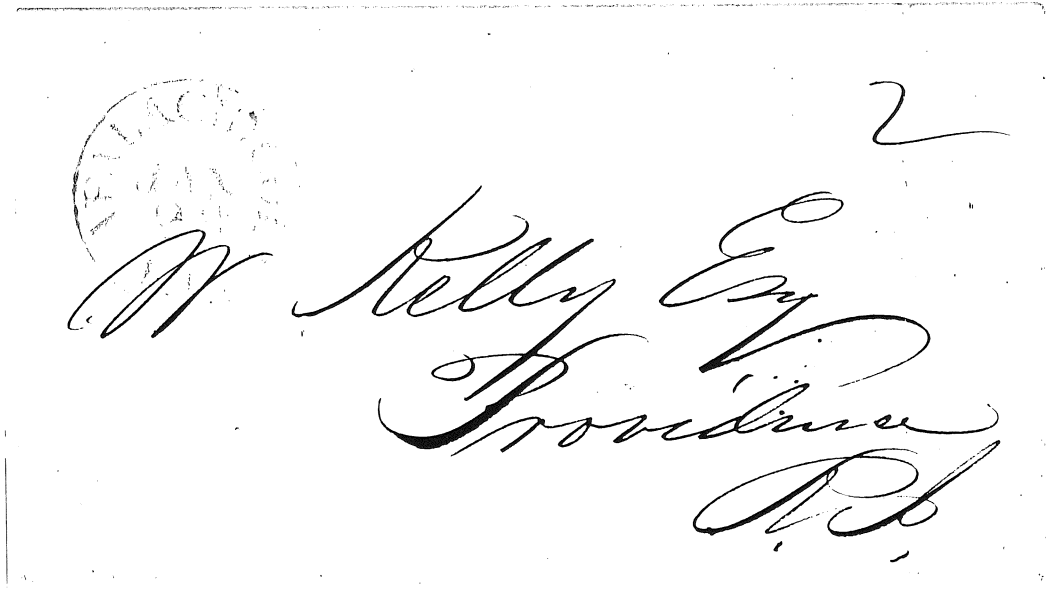 2
W Kelly Esq
Providence
R.I.